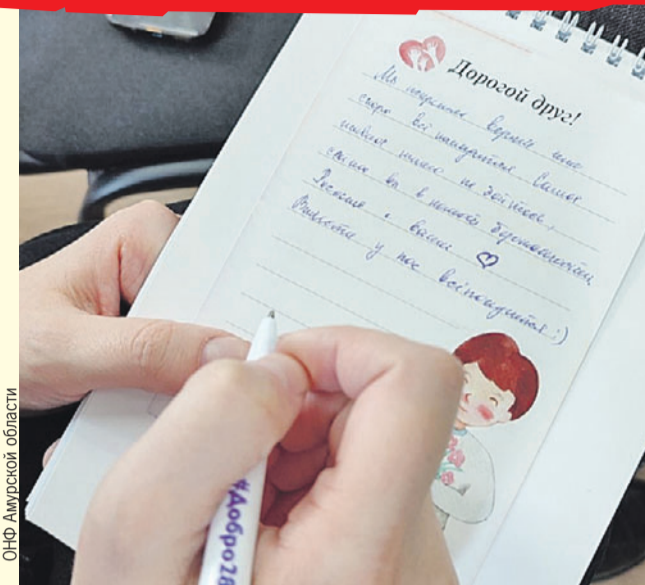 Дорогой друг!
Мы искренне верим что
скоро всё наладится. Самое
главное никого не
если вы в
Россия с вами ♡
Вместе у нас всё получится :)
#Добро28
ОНФ Амурской области